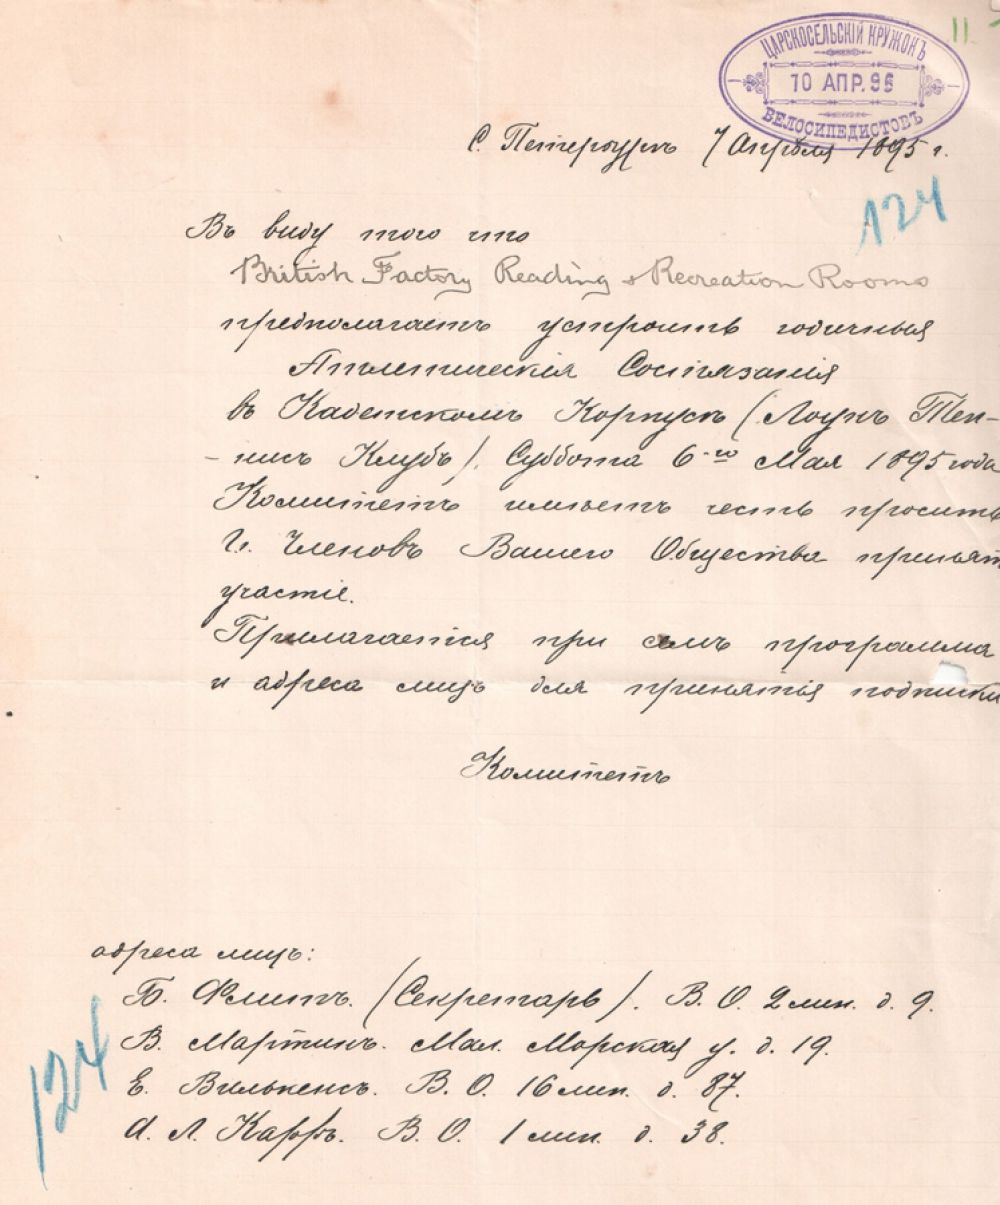 11
ЦАРСКОСЕЛЬСКІЙ КРУЖОКЪ
10 АПР. 95
ВЕЛОСИПЕДИСТОВЪ
С. Петербургъ 7 Апрѣля 1895 г.
124
Въ виду того что
British Factory Reading & Recreation Rooms
предполагаетъ устроить годичныя
Атлетическія Состязанія
въ Кадетскомъ Корпусѣ (Лоунъ Тен-
-нисъ Клубъ). Суббота 6-го Мая 1895 года
Комитетъ имѣетъ честь просить
Гг. Членовъ Вашего Общества принять
участіе.
Прилагается при семъ программа
и адреса лицъ для принятія подписки
Комитетъ
адреса лицъ:
Б. Флитъ. (Секретарь). В. О. 2 лин. д. 9.
В. Мартинъ. Мал. Морская у. д. 19.
Е. Вилькенсъ. В. О. 16 лин. д. 87.
А. Л. Карръ. В. О. 1 лин. д. 38.
124